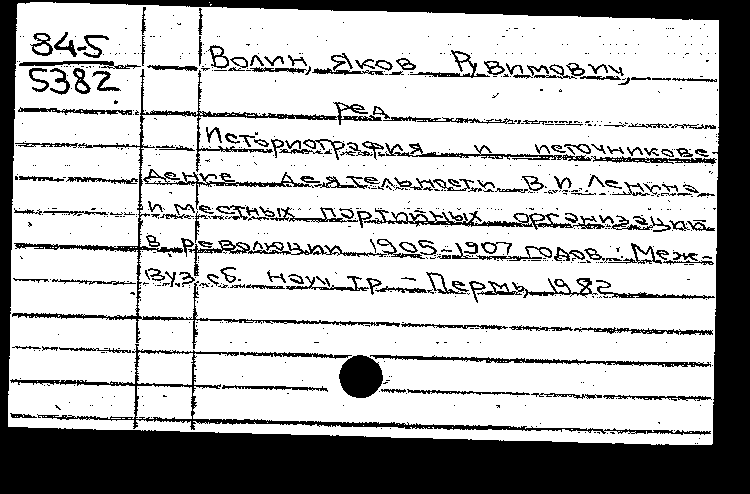 84-5
5382
Волин, Яков Рувимович,
ред
Историография и источникове
дение деятельности В.И.Ленина
и местных партийных организаций
в революции 1905-1907 годов : Меж-
вуз сб. науч тр. - Пермь, 1982